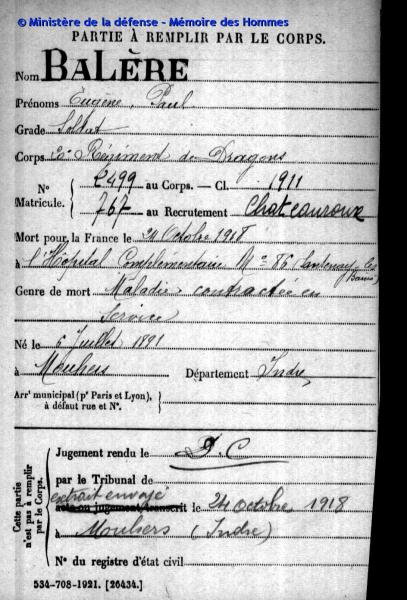 © Ministère de la défense - Mémoire des Hommes
PARTIE À REMPLIR PAR LE CORPS.
Nom BALÈRE
Prénoms Eugène, Paul
Grade Soldat
Corps 20e Régiment de Dragons
N° 2499 au Corps. — Cl. 1911
Matricule. 767 au Recrutement Chateauroux
Mort pour la France le 24 Octobre 1918
à l'Hôpital Complémentaire N° 86 (Santenay-les-Bains)
Genre de mort Maladie contractée en
service
Né le 5 Juillet 1891
à Mouhers Département Indre
Arrt municipal (pr Paris et Lyon),
à défaut rue et N°.
Cette partie n'est pas à remplir par le Corps.
Jugement rendu le D.C
par le Tribunal de
extrait envoyé
acte ou jugement transcrit le 24 octobre 1918
à Mouhers (Indre)
N° du registre d'état civil
534-708-1921. [26434.]